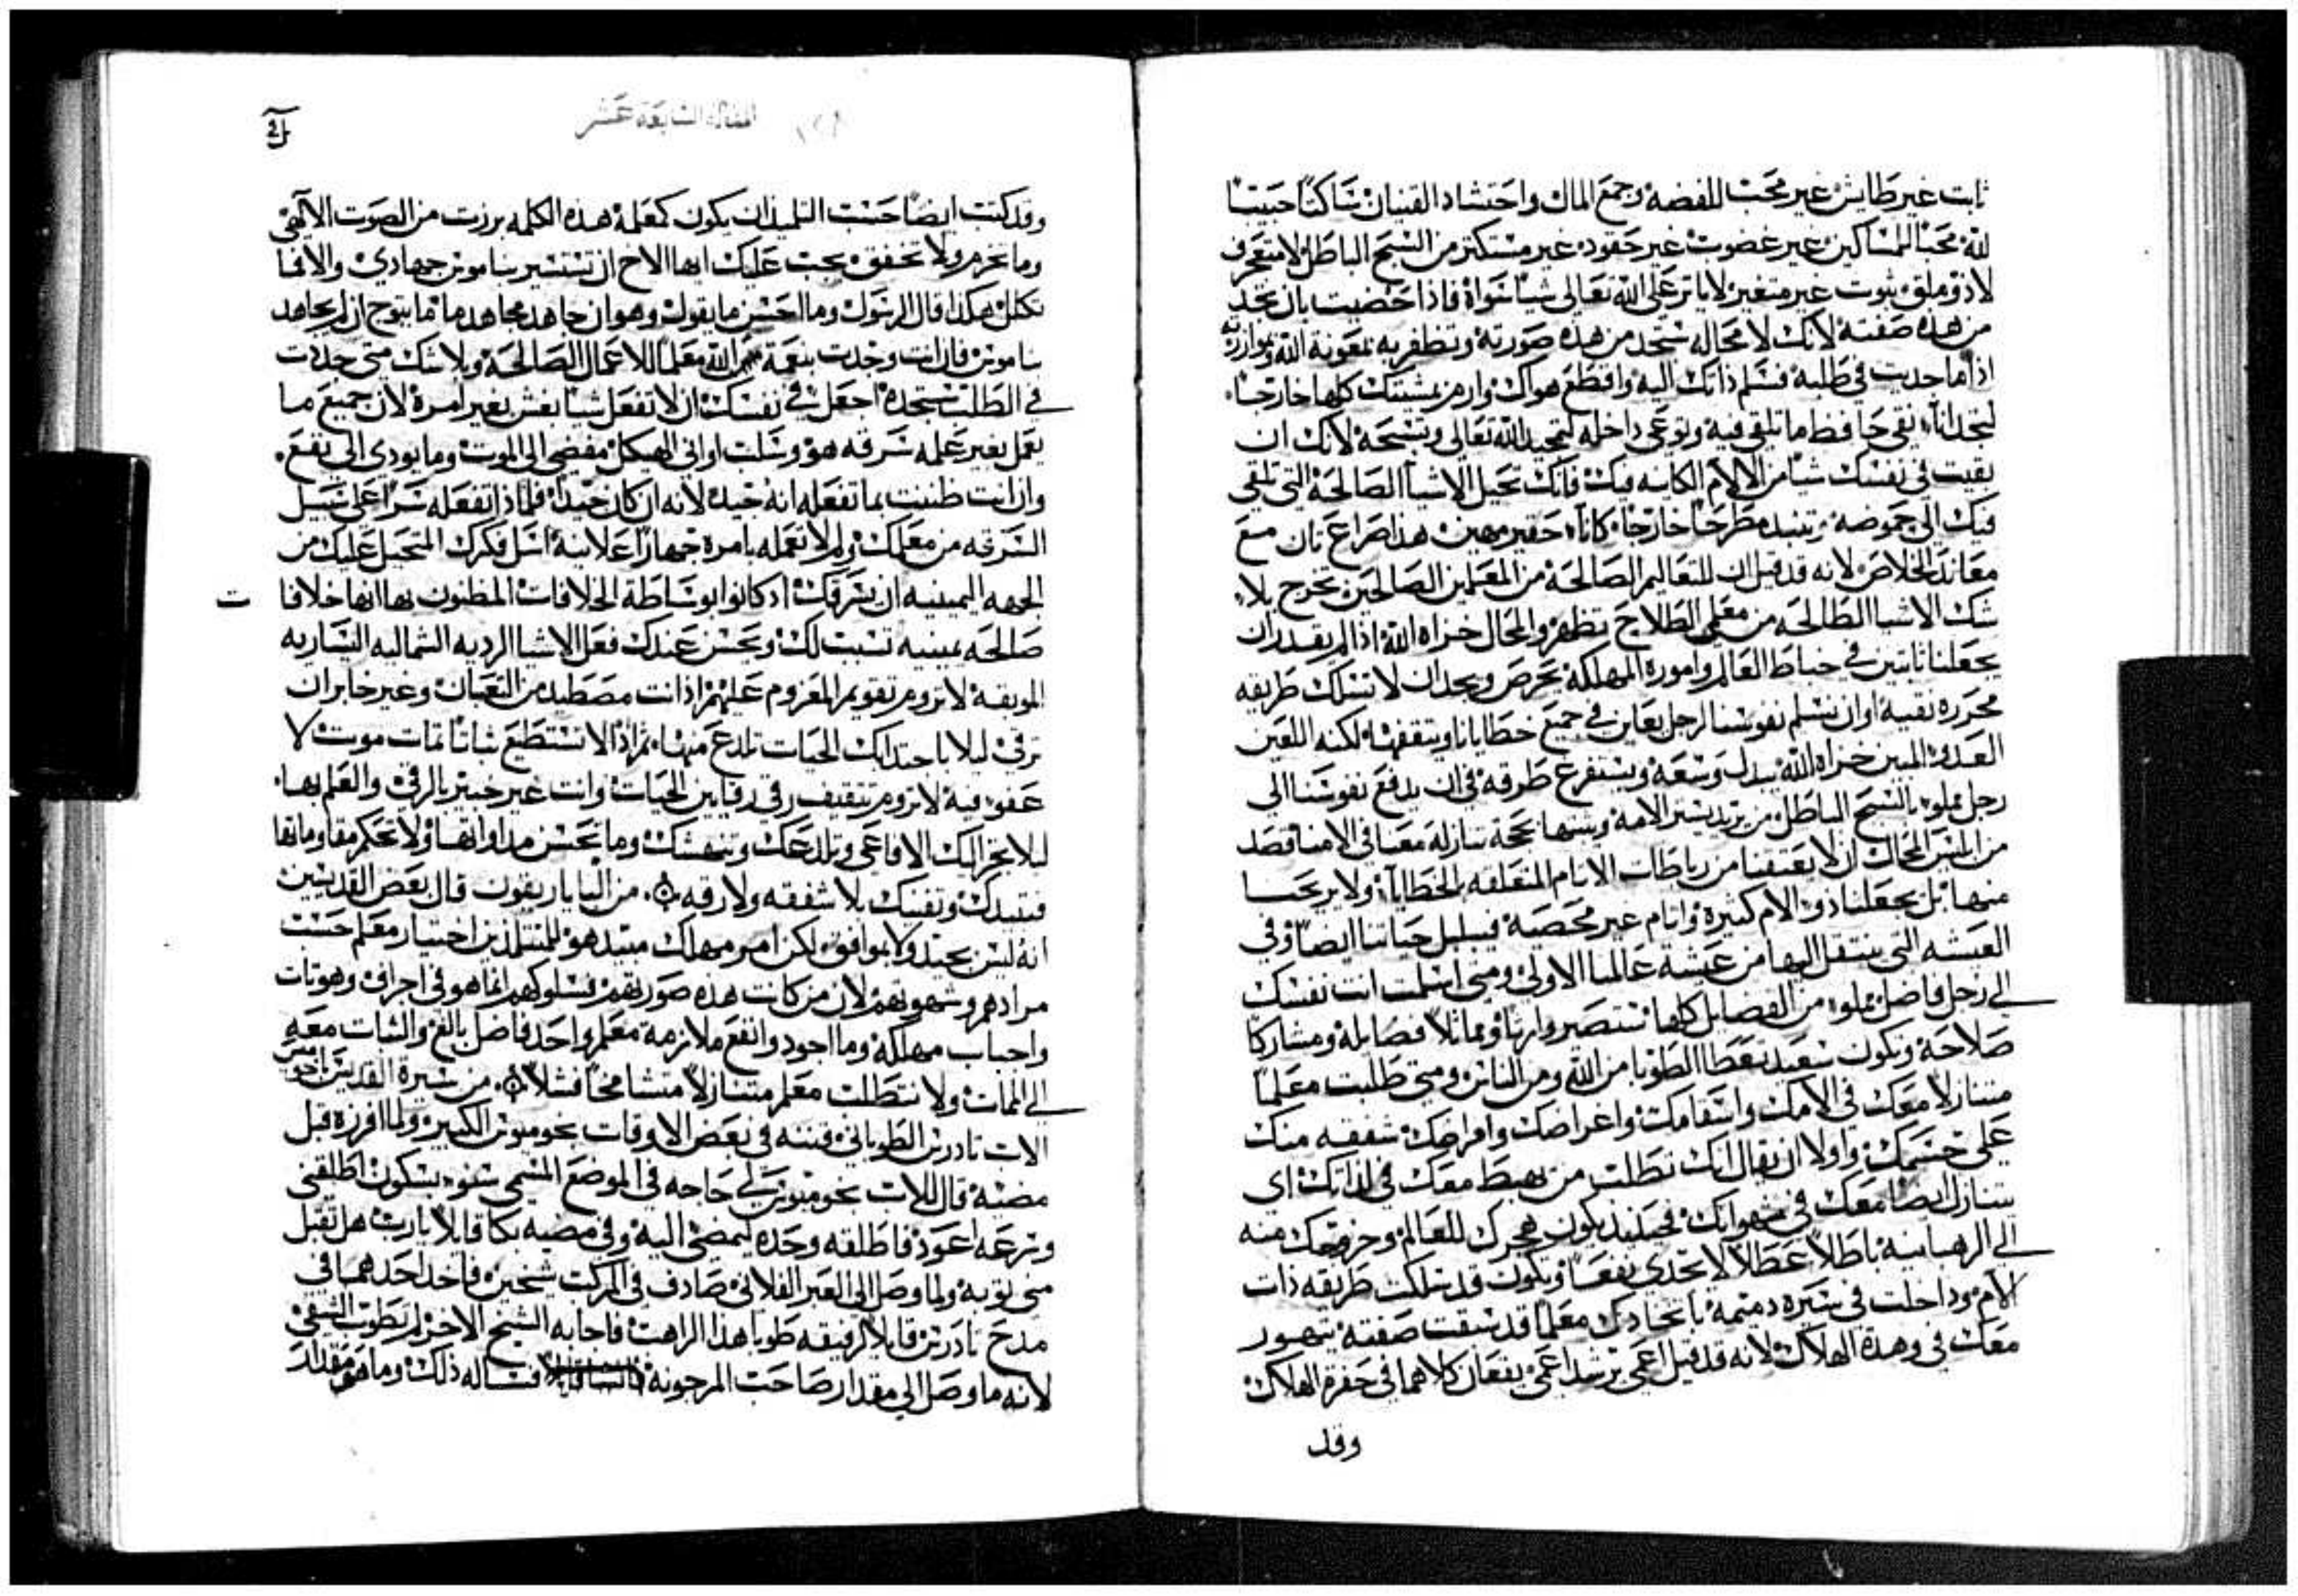 ثابت غير طايش غير محب للفضه وجمع المال واحتشاد القنيان ساكناً حبيباً
لله محباً للمساكين غير غضوب غير حقود غير مستكثر من السبح الباطل لا متعجرف
لا ذو ملق ثبوت غير متغير لا ياثر على الله تعالى شياً سواه فاذا حضيت بان تجد
من هذه صفته لانك لا محاله ستجد من هذه صورته وتظفر به بمعونة الله وموازرته
اذا ما جديت في طلبه فسلم ذاتك اليه واقطع هواك وارم بمشيتك كلها خارجاً
لتجد اناء نقي حافظ ما تلقي فيه وتوعي داخله لتمجيد الله تعالى وتسبحة لانك ان
بقيت في نفسك شياً من الالام الكاينه فيك فانك تحيل الاشيا الصالحة التي تلقي
فيك الى حموضه وتنبد مطرحاً خارجاً كاناء حقير مهين هذا صراع تان مع
معاند الخلاص لانه قد قيل ان للتعاليم الصالحة من المعلمين الصالحين تخرج بلا
شك الاشيا الطالحه من معلمي الطلاح تظهر والمحال خزاه الله اذا لم يقدر ان
يجعلنا ثابتين في خباط العالم واموره المهلكه يحرص ويجد ان لا نسلك طريقه
محرره نقيه او ان نسلم نفوسنا لرجل يعاين في جميع خطايانا ويتقفها لكنه اللعين
العدو المبين خزاه الله يبدل وسعه ويستفرغ طوقه في ان يدفع نفوسنا الى
رجل مملوء بالسبح الباطل من يزيد يستر الامه وبينها بحجة تنازله معنا في الامنا قصد
من ابليس المحال ان لا يعتقنا من رباطات الاثام المتعلقه بالخطايا ولا يريحنا
منها بل يجعلنا ذوو الام كثيرة واثام غير محصية في سبيل حياتنا ايضاً وفي
العيشه التي ننتقل اليها من عيشة عالمنا الاولى ومتى اسلمت انت نفسك
الى رجل فاضل مملوء من الفضايل كلها ستصير وارثاً ومماثلاً فضايله ومشاركا
صلاحه وتكون سعيد تعطا الطوبا من الله ومن الناس ومتى طلبت معلماً
متنازلاً معك في الامك واسقامك واغراضك وامراضك شفقه منك
على جسمك واولا ان يقال انك تطلب من يهبط معك في لذاتك اي
يتنازل ايضاً معك في شهواتك فحينيذ يكون هجرك للعالم وخروجك منه
الى الرهبانيه باطلاً عطالاً لا تجدي نفعاً وتكون قد سلكت طريقه ذات
الام وداخلت في سيره دميمه باتخاذك معلماً قد سبقت صفته يتهور
معك في وهدة الهلاك لانه قد قيل اعمى يرشد اعمى يقعان كلاهما في حفرة الهلاك
وقد
المقاله السابعة عشر
وقد كتب ايضاً حسب التلميذ ان يكون كمعلمه هذه الكلمه برزت من الصوت الالهي
وما تخرم ولا تخفق يجب عليك ايها الاخ ان تستسير بناموس جهادي والا فما
تكلل هكذا قال الرسول وما احسن ما يقول وهو ان جاهد مجاهد ما فما يتوج ان لم يجاهد
بناموس فان انت وجدت بنعمة من الله معلماً للاعمال الصالحة وبلا شك متى جديت
في الطلب ستجده اجعل في نفسك ان لا تفعل شياً بغش بغير امره لان جميع ما
يعمل بغير علمه سرقه هو وسلب اواني الهيكل مفضي الى الموت وما يودي الى نفع
وان انت ظننت بما تفعله انه جيد لانه ان كان جيداً فلماذا تفعله سراً على سبيل
السرقه من معلمك ولم لا تعمله بامره جهاراً علانيةً اسل فكرك المتحيل عليك من
الجهه اليمينيه ان يسرقك اذ كانوا بوساطة الخلافات المظنون بها انها خلافا ت
صالحه يمينيه تسبب لك ويحسن عندك فعل الاشيا الرديه الشماليه اليساريه
الموبقه لا تروم تقويم المغروم عليهم اذ انت مصطيد من الثعبان وغير خابر ان
ترقى ليلا باجتدابك الحيات تلدع منها ثم اذ لا تستطيع ثباتاً تمات موت لا
عفو فيه لا تروم تثقيف رقي رقايين الحيات وانت غير خبير بالرقي والعلم بها
ليلا تجر اليك الافاعي وتلدعك وتنهشك وما تحسن مداواتها ولا تحكم مقاوماتها
فتبيدك وتفنيك بلا شفقه ولا رقه من الباباريقون قال بعض القديسين
انه ليس بجيد ولا بموافق لكن امر مهلك مبيد هو للمتتلمذين اختيار معلم حسب
مرادهم وشهوتهم لان من كانت هذه صورتهم فسلوكهم انما هو في اجراف وهوتات
واجباب مهلكه وما اجود وانفع ملازمة معلم واحد فاضل بالغ والثبات معه
الى الممات ولا نتطلب معلم متنازلاً متشامخاً فشلاً من سيرة القديس باخوميس
الاب تادرس الطوباني فتنه في بعض الاوقات بخوميوس الكبير ولما افرزه قبل
مضيه قال للاب بخوميوس لي حاجه في الموضع المسمى شنوء بسكون اطلقني
وبسرعه اعود فاطلقه وحده ليمضي اليه وفي مضيه بكا قايلاً يا رب هل تقبل
مني توبه ولما وصل الى العبر الفلاني صادف في المركب شيخين فاخذ احدهما في
مدح تادرس قايلاً لرفيقه طوبا هذا الراهب فاجابه الشيخ الاخر لم تطوب الشقي
لانه ما وصل الى مقدار صاحب المرجونه فساله ذلك وما هو مقدار